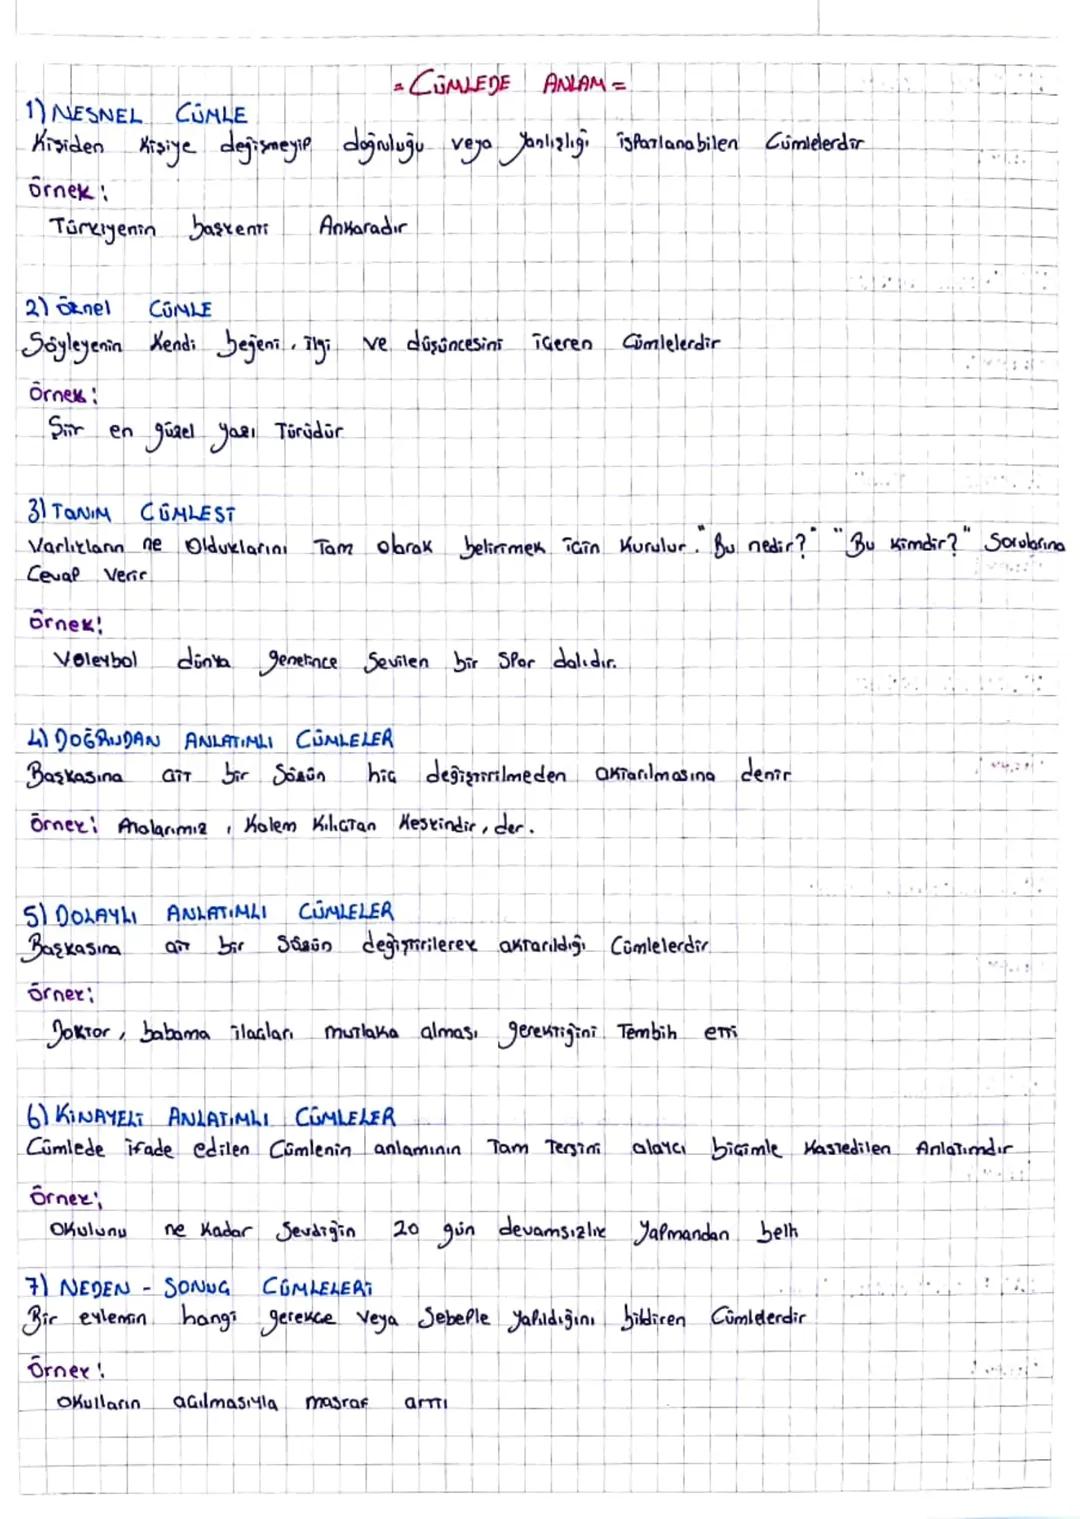 = CÜMLEDE ANLAM =
1) NESNEL CÜMLE
Kişiden Kişiye değişmeyip doğruluğu veya yanlışlığı ispatlanabilen Cümlelerdir
örnek:
Türkiyenin başkenti Ankaradır
2) öznel CÜMLE
Söyleyenin Kendi beğeni, ilgi ve düşüncesini içeren Cümlelerdir
Örnek:
Şiir en güzel yazı Türüdür
3) TANIM CÜMLESİ
Varlıkların ne Olduklarını Tam olarak belirtmek için Kurulur. "Bu nedir?" "Bu Kimdir?" Sorularına
Cevap Verir
örnek:
Voleybol dünya genelince Sevilen bir Spor dalıdır.
4) DOĞRUDAN ANLATIMLI CÜMLELER
Başkasına ait bir Sözün hiç değiştirilmeden aktarılmasına denir
örnek: Atalarımız, Kalem Kılıçtan Keskindir, der.
5) DOLAYLI ANLATIMLI CÜMLELER
Başkasına ait bir Sözün değiştirilerek aktarıldığı Cümlelerdir
örnek:
Doktor, babama ilaçları mutlaka alması gerektiğini Tembih etti
6) KİNAYELİ ANLATIMLI CÜMLELER
Cümlede ifade edilen Cümlenin anlamının Tam Tersini alaycı biçimle Kastedilen Anlatımdır
Örnek;
Okulunu ne Kadar Sevdiğin 20 gün devamsızlık Yapmandan belli
7) NEDEN - SONUÇ CÜMLELERİ
Bir eylemin hangi gerekçe veya Sebeple yapıldığını bildiren Cümlelerdir
Örnek:
Okulların açılmasıyla masraf arttı